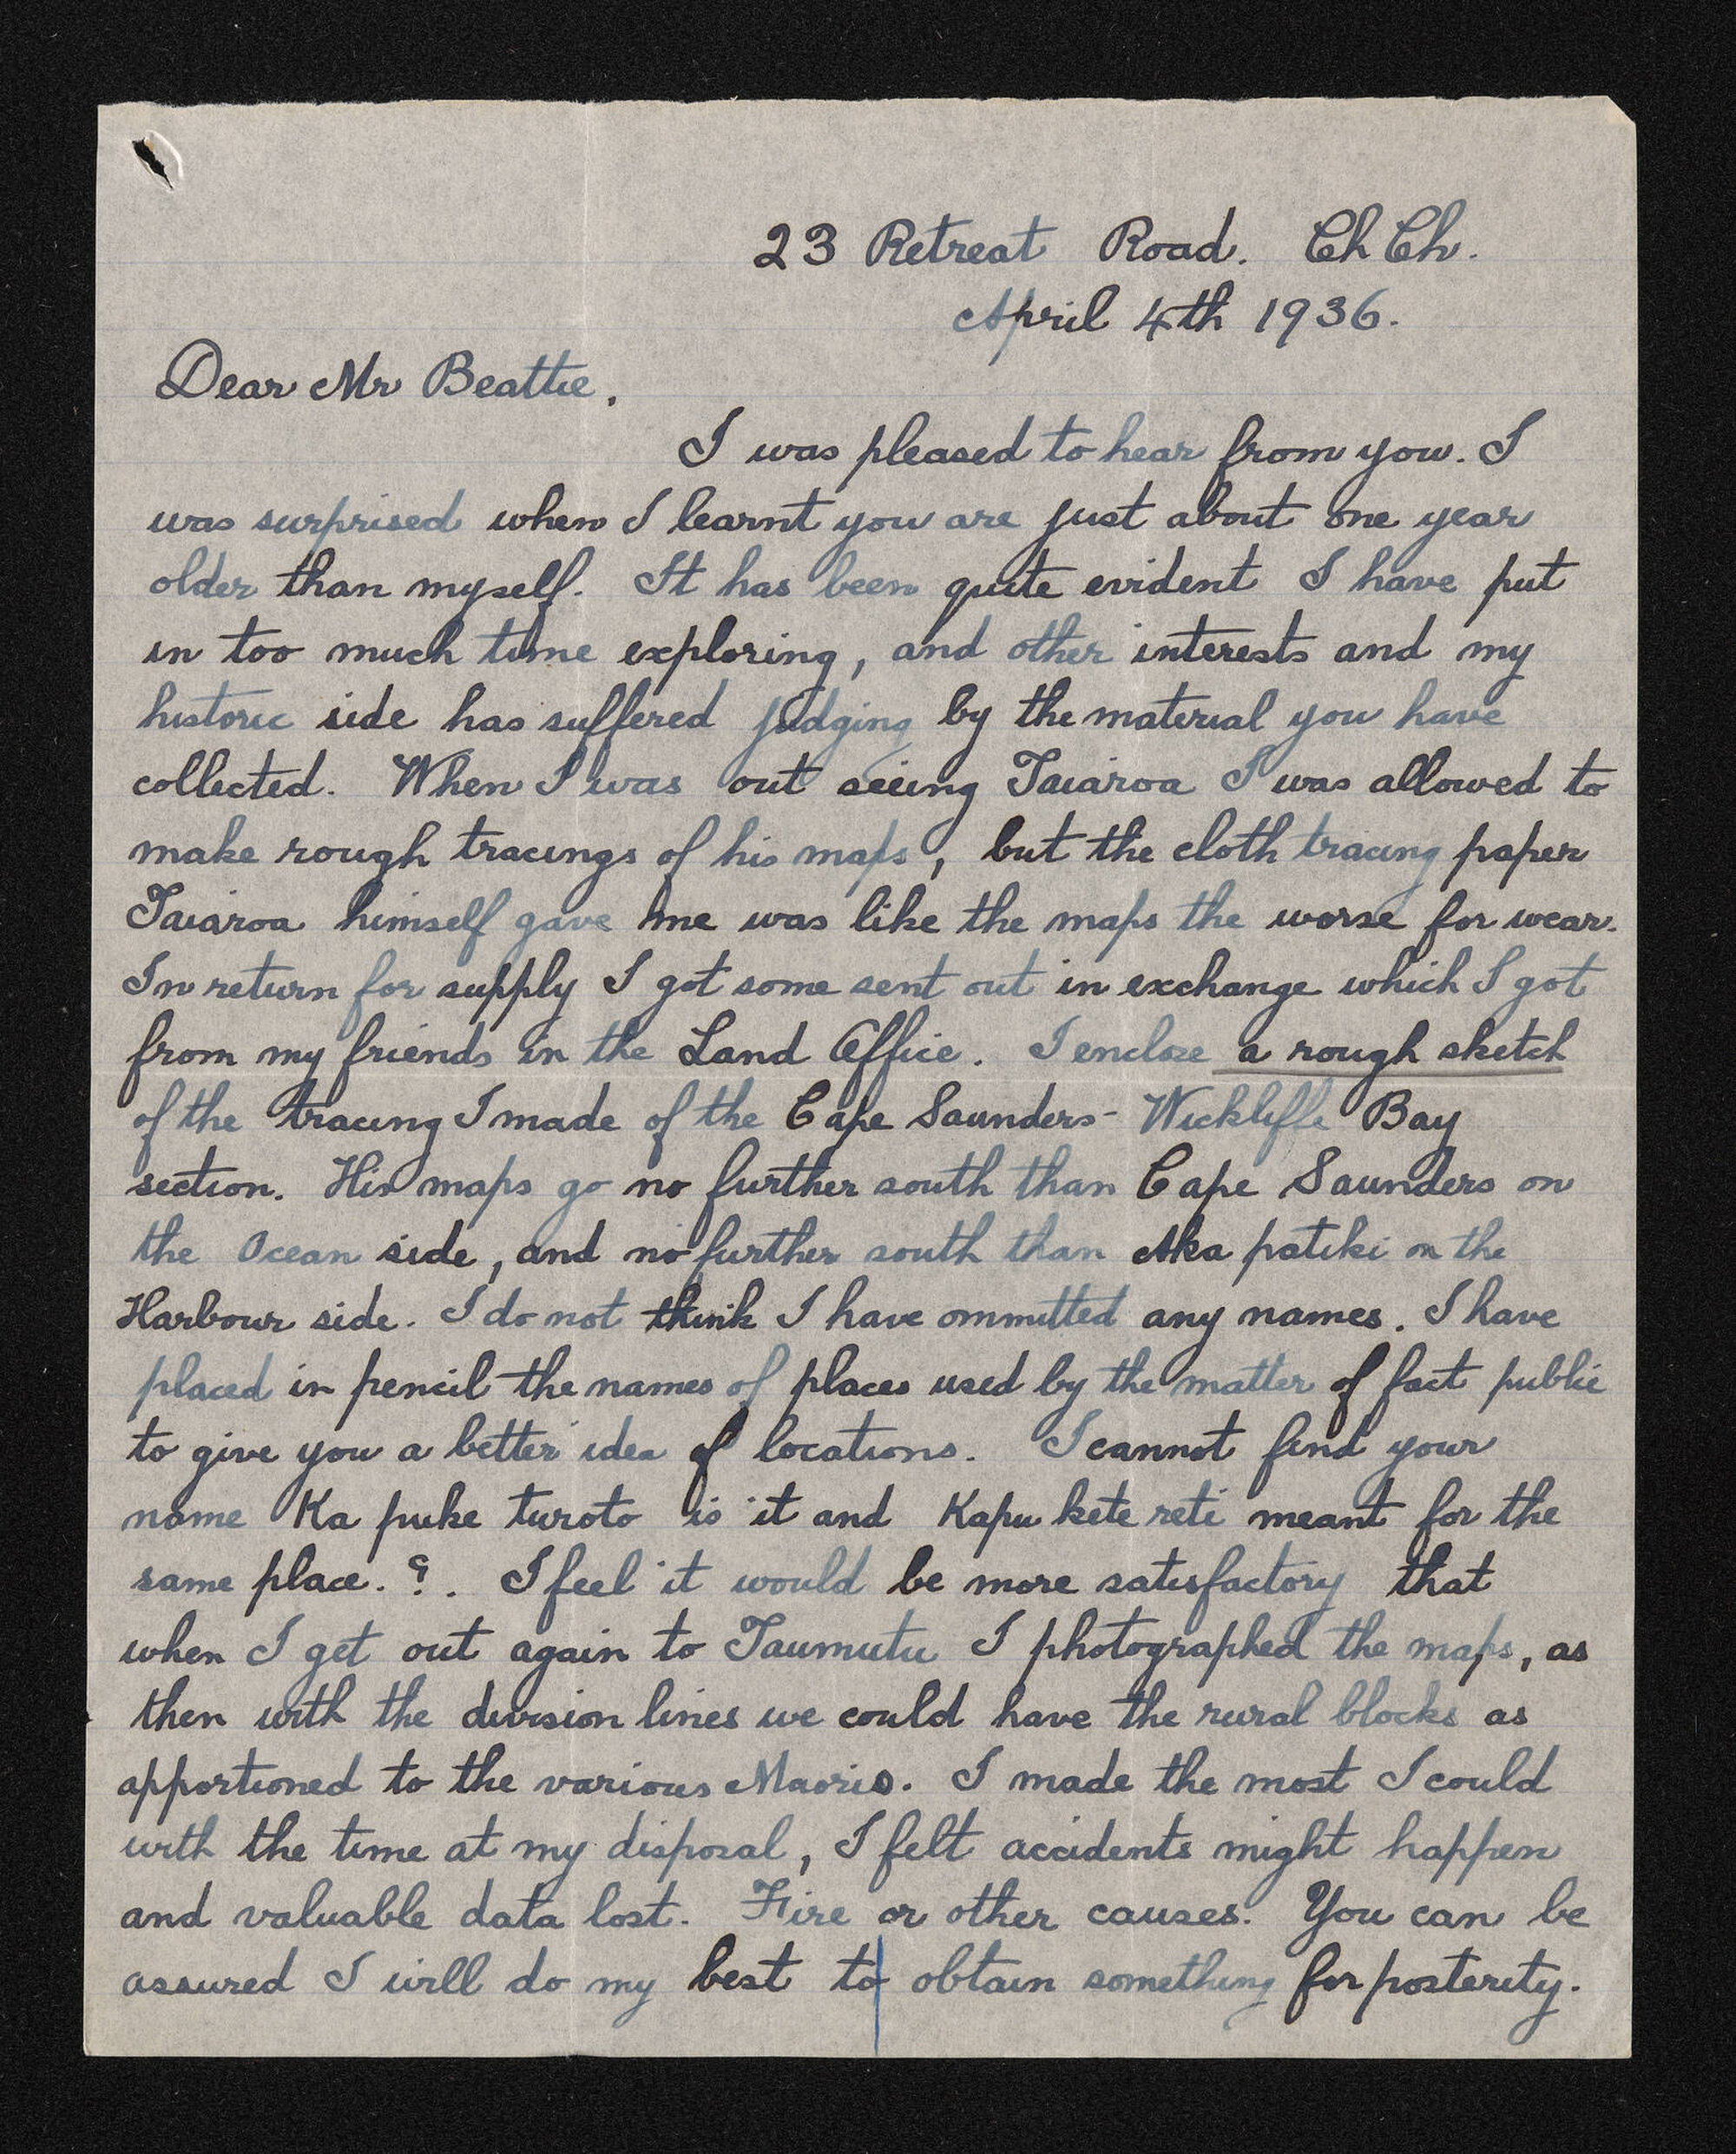 23 Retreat Road. Ch Ch.
April 4th 1936.
Dear Mr Beattie,
I was pleased to hear from you. I
was surprised when I learnt you are just about one year
older than myself. It has been quite evident I have put
in too much time exploring, and other interests and my
historic side has suffered judging by the material you have
collected. When I was out seeing Taiaroa I was allowed to
make rough tracings of his maps, but the cloth tracing paper
Taiaroa himself gave me was like the maps the worse for wear.
In return for supply I got some sent out in exchange which I got
from my friends in the Land Office. I enclose a rough sketch
of the tracing I made of the Cape Saunders - Wickliffe Bay
section. His maps go no further south than Cape Saunders on
the Ocean side, and no further south than Aka patiki on the
Harbour side. I do not think I have ommitted any names. I have
placed in pencil the names of places used by the matter of fact public
to give you a better idea of locations. I cannot find your
name Ka puke turoto is it and Kapu kete reti meant for the
same place. ?. I feel it would be more satisfactory that
when I get out again to Taumutu I photographed the maps, as
then with the division lines we could have the rural blocks as
apportioned to the various Maoris. I made the most I could
with the time at my disposal, I felt accidents might happen
and valuable data lost. Fire or other causes. You can be
assured I will do my best to obtain something for posterity.